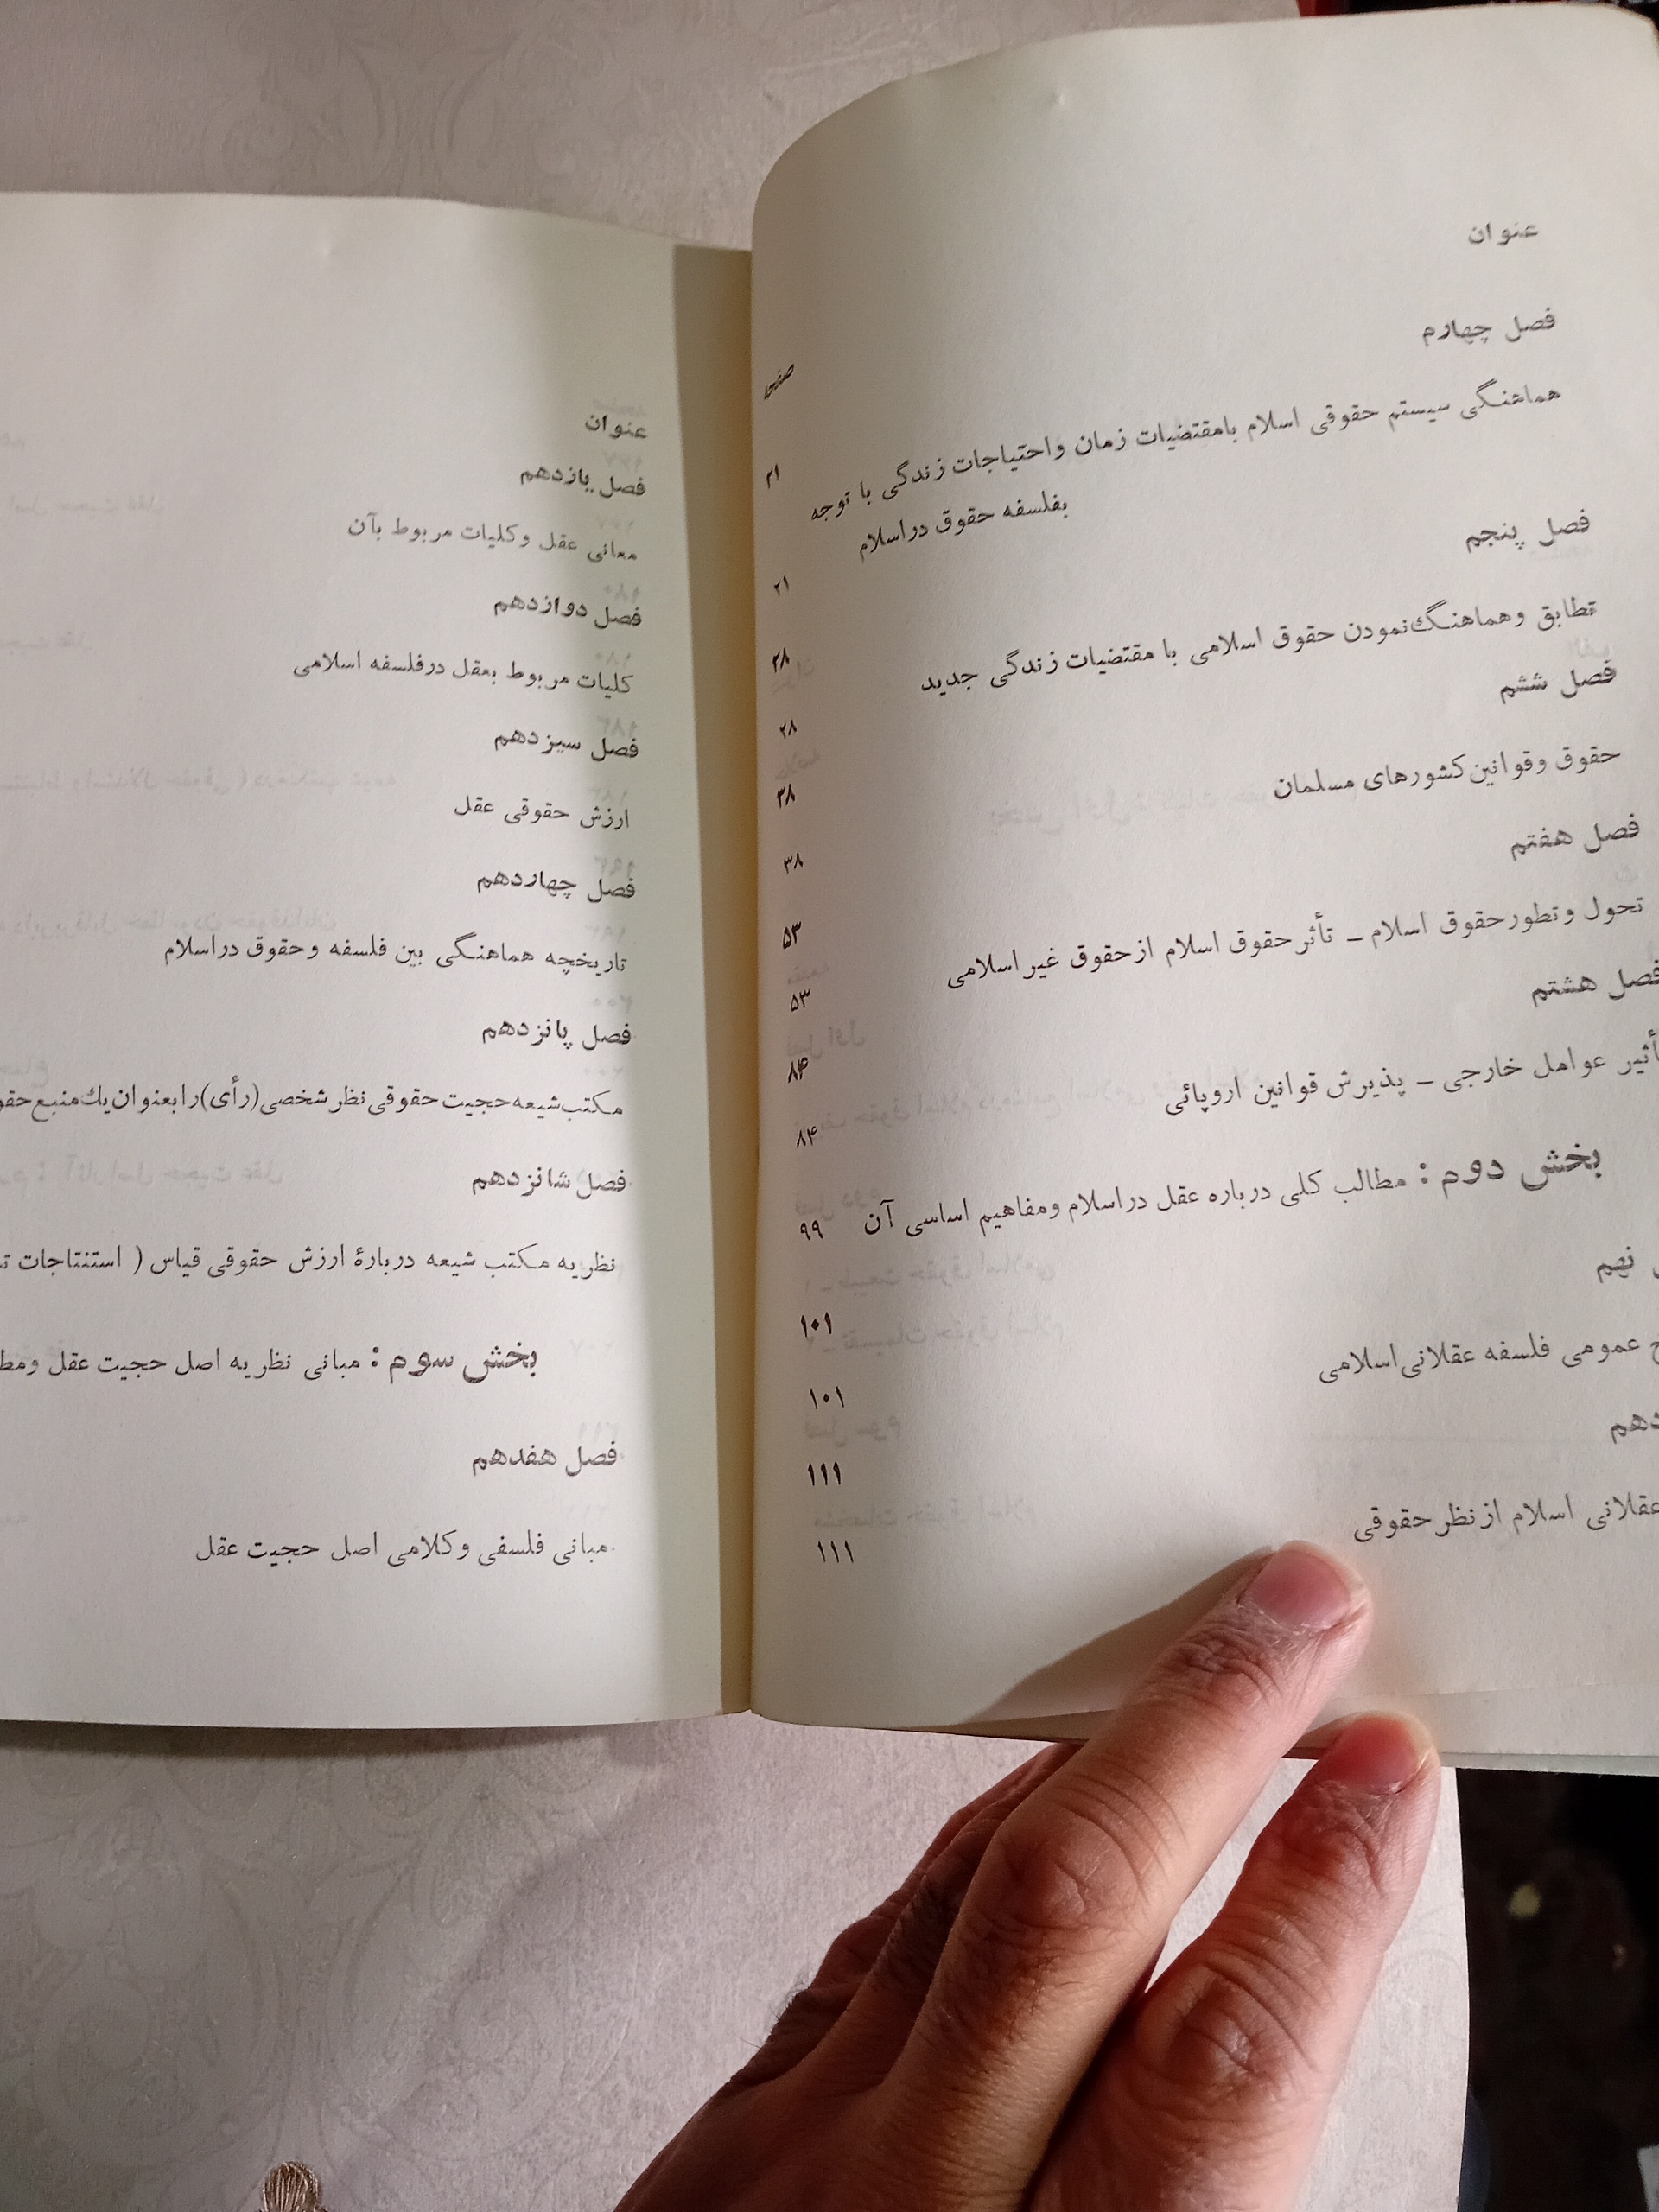 عنوان
صفحه
فصل چهارم
۲۱
هماهنگی سیستم حقوقی اسلام بامقتضیات زمان واحتیاجات زندگی با توجه
بفلسفه حقوق دراسلام
۲۱
فصل پنجم
۲۸
تطابق وهماهنگ‌نمودن حقوق اسلامی با مقتضیات زندگی جدید
۲۸
فصل ششم
۳۸
حقوق وقوانین‌کشورهای مسلمان
۳۸
فصل هفتم
۵۳
تحول وتطورحقوق اسلام ــ تأثرحقوق اسلام ازحقوق غیراسلامی
۵۳
فصل هشتم
۸۴
عوامل خارجی ــ پذیرش قوانین اروپائی
۸۴
بخش دوم : مطالب کلی درباره عقل دراسلام ومفاهیم اساسی آن
۹۹
نهم
۱۰۱
عمومی فلسفه عقلانی‌اسلامی
۱۰۱
۱۱۱
عقلانی اسلام ازنظرحقوقی
۱۱۱
عنوان
فصل یازدهم
معانی عقل وکلیات مربوط بآن
فصل دوازدهم
کلیات مربوط بعقل درفلسفه اسلامی
فصل سیزدهم
ارزش حقوقی عقل
فصل چهاردهم
تاریخچه هماهنگی بین فلسفه وحقوق دراسلام
فصل پانزدهم
مکتب‌شیعه‌حجیت‌حقوقی‌نظرشخصی(رأی)رابعنوان‌یك‌منبع
فصل شانزدهم
نظریه مکتب شیعه دربارهٔ ارزش حقوقی قیاس ( استنتاجات
بخش سوم : مبانی نظریه اصل حجیت عقل
فصل هفدهم
مبانی فلسفی وکلامی اصل حجیت عقل